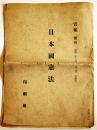 官報 號外
日本國憲法
印刷局